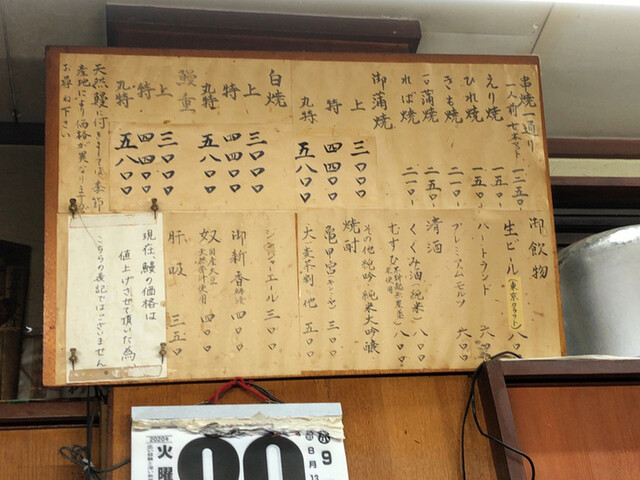 串焼一通り
一人前七本セット 一二五〇
えり焼 一五〇
ひれ焼 一五〇
きも焼 二一〇
一口蒲焼 二五〇
れば焼 二一〇
御蒲焼
上 三〇〇〇
特 四四〇〇
丸特 五八〇〇
白焼
上 三〇〇〇
特 四四〇〇
丸特 五八〇〇
鰻重
上 三〇〇〇
特 四四〇〇
丸特 五八〇〇
天然鰻に付きましては季節
産地により価格が異なります
お尋ね下さい
御飲物
生ビール (東京クラフト) 八〇
ハートランド 六〇
プレミアムモルツ 六〇〇
清酒
くくみ酒(純米) 八〇〇
むすひ 八〇〇
その他純吟・純米大吟醸
焼酎
亀甲宮(キンミヤ) 三〇〇
大麦 他 五〇〇
ジンジャーエール 三〇〇
御新香 四〇〇
奴 国産大豆天然苦汁使用 四〇〇
肝吸 三五〇
現在、鰻の価格は
値上げさせて頂いた為、
こちらの表記ではございません。
2020年
火曜
9